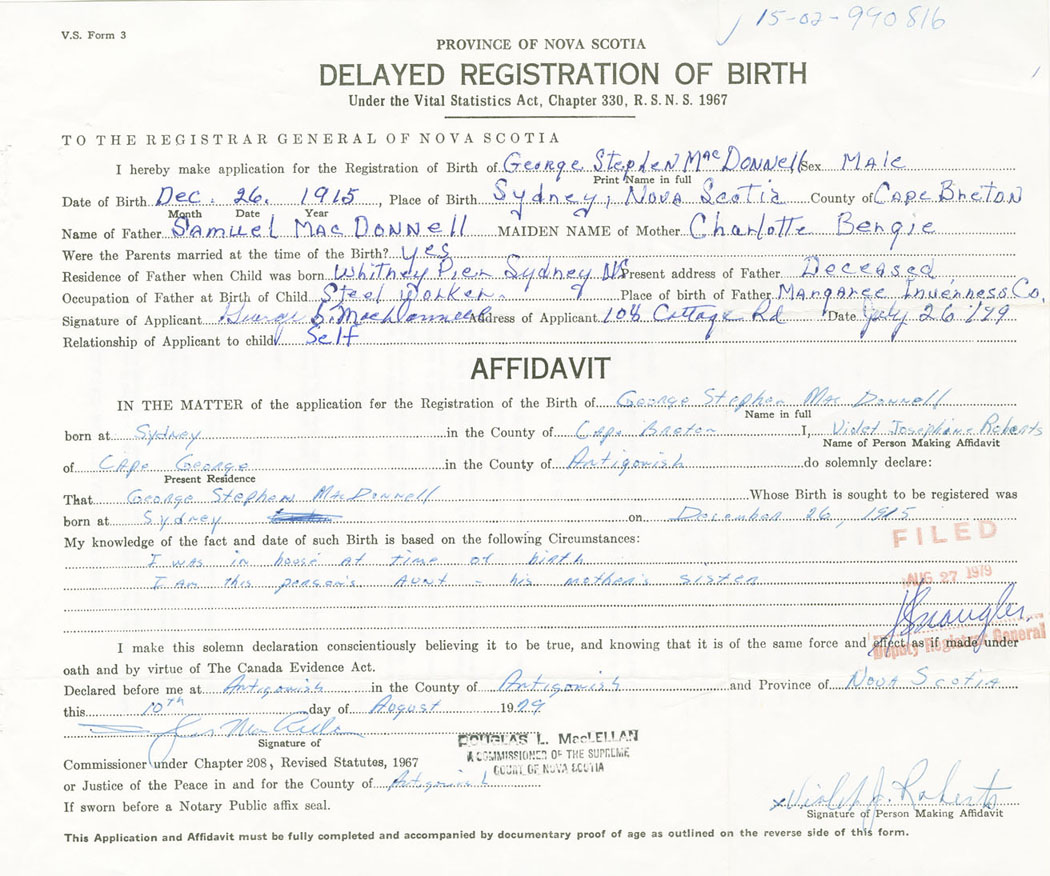 15-02-990816
V.S. Form 3
PROVINCE OF NOVA SCOTIA
DELAYED REGISTRATION OF BIRTH
Under the Vital Statistics Act, Chapter 330, R. S. N. S. 1967
TO THE REGISTRAR GENERAL OF NOVA SCOTIA
I hereby make application for the Registration of Birth of George Stephen MacDonnell Sex Male
Print Name in full
Date of Birth Dec. 26. 1915, Place of Birth Sydney, Nova Scotia County of Cape Breton
Month Date Year
Name of Father Samuel MacDonnell MAIDEN NAME of Mother Charlotte Bengie
Were the Parents married at the time of the Birth? yes
Residence of Father when Child was born Whitney Pier Sydney NS Present address of Father Deceased
Occupation of Father at Birth of Child Steel Worker. Place of birth of Father Margaree Inverness Co.
Signature of Applicant George S. MacDonnell Address of Applicant 108 Cottage Rd Date July 26/79
Relationship of Applicant to child Self
AFFIDAVIT
IN THE MATTER of the application for the Registration of the Birth of George Stephen Mac Donnell
Name in full
born at Sydney in the County of Cape Breton I, Violet Josephine Roberts
Name of Person Making Affidavit
of Cape George in the County of Antigonish do solemnly declare:
Present Residence
That George Stephen MacDonnell Whose Birth is sought to be registered was
born at Sydney on December 26, 1915
My knowledge of the fact and date of such Birth is based on the following Circumstances:
I was in house at time of birth
I am this person's Aunt - his mother's sister
FILED
AUG 27 1979
Deputy Registrar General
I make this solemn declaration conscientiously believing it to be true, and knowing that it is of the same force and effect as if made under
oath and by virtue of The Canada Evidence Act.
Declared before me at Antigonish in the County of Antigonish and Province of Nova Scotia
this 10th day of August 1979
Signature of
DOUGLAS L. MacLELLAN
A COMMISSIONER OF THE SUPREME
COURT OF NOVA SCOTIA
Commissioner under Chapter 208, Revised Statutes, 1967
or Justice of the Peace in and for the County of Antigonish
If sworn before a Notary Public affix seal.
Violet J. Roberts
Signature of Person Making Affidavit
This Application and Affidavit must be fully completed and accompanied by documentary proof of age as outlined on the reverse side of this form.